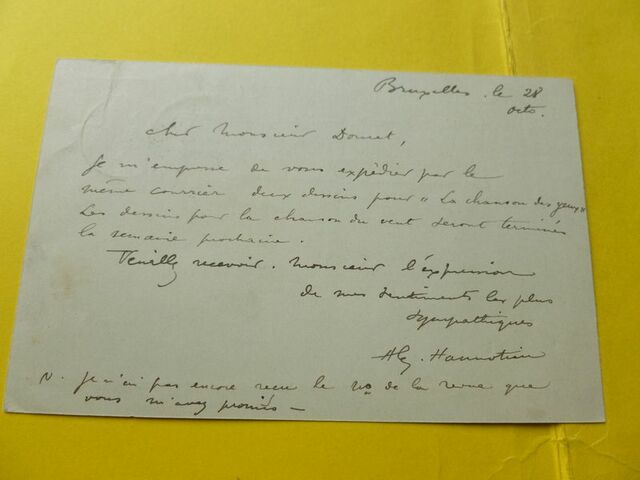 Bruxelles. le 28
octo.
Cher Monsieur Doucet,
Je m'empresse de vous expédier par le
même courrier deux dessins pour "La chanson des yeux"
Les dessins pour la chanson du vent seront terminés
la semaine prochaine.
Veuillez recevoir. Monsieur l'expression
de mes sentiments les plus
sympathiques
Alex. Hannotiau
N. Je n'ai pas encore reçu le no de la revue que
vous m'avez promis —